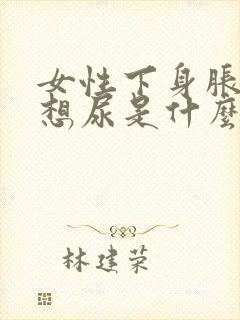 女性下身脹
想尿是什麼
林建荣